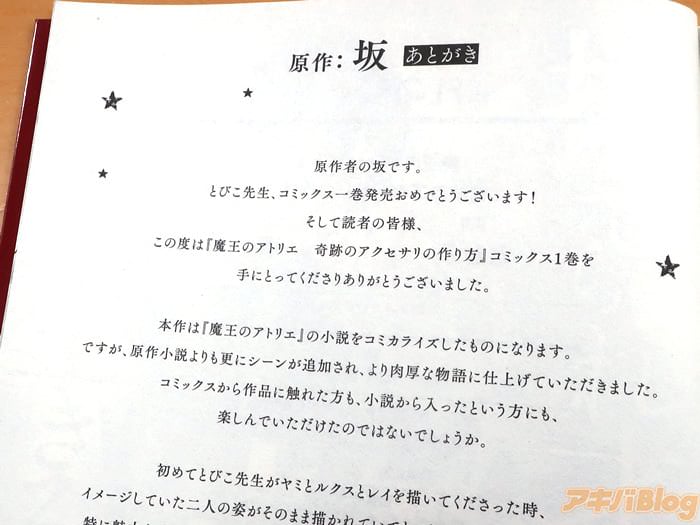 原作：坂 あとがき
原作者の坂です。
とびこ先生、コミックス一巻発売おめでとうございます！
そして読者の皆様、
この度は『魔王のアトリエ　奇跡のアクセサリの作り方』コミックス1巻を
手にとってくださりありがとうございました。
本作は『魔王のアトリエ』の小説をコミカライズしたものになります。
ですが、原作小説よりも更にシーンが追加され、より肉厚な物語に仕上げていただきました。
コミックスから作品に触れた方も、小説から入ったという方にも、
楽しんでいただけたのではないでしょうか。
初めてとびこ先生がヤミとルクスとレイを描いてくださった時、
イメージしていた二人の姿がそのまま描かれていて
アキバBlog